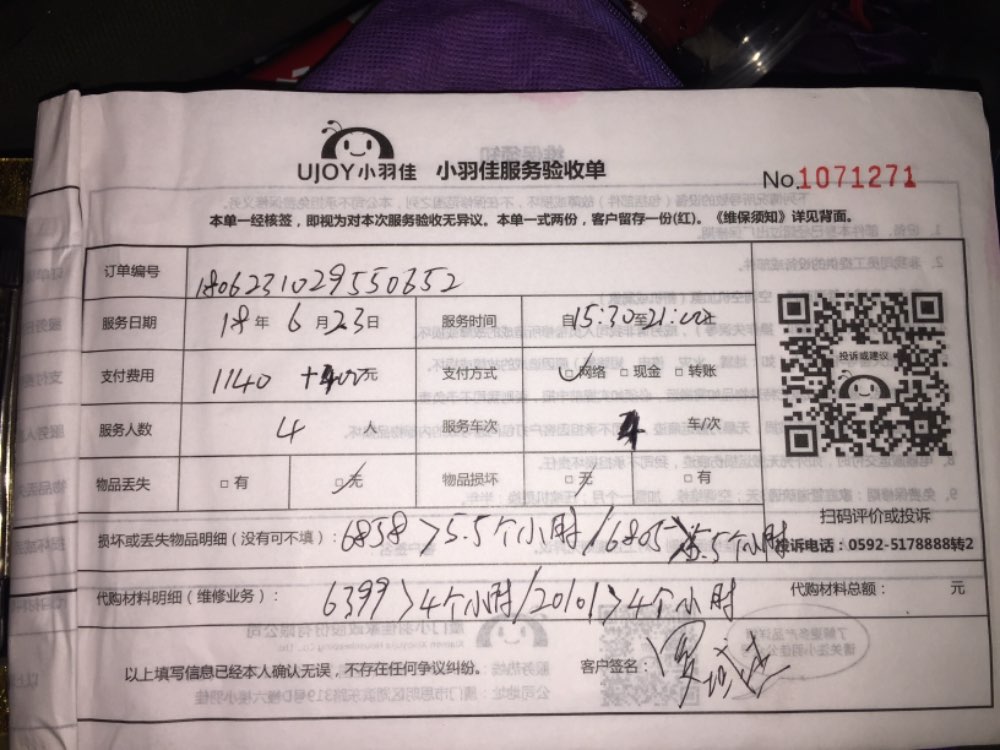 UJOY小羽佳 小羽佳服务验收单
No.1071271
本单一经核签，即视为对本次服务验收无异议。本单一式两份，客户留存一份(红)。《维保须知》详见背面。
订单编号 180623102955 0652
服务日期 18年6月23日 服务时间 自15:30至21:00止
支付费用 1140 元 支付方式 □网络 □现金 □转账
服务人数 4 人 服务车次 4 车/次
物品丢失 □有 □无 物品损坏 □无 □有
投诉或建议
扫码评价或投诉
损坏或丢失物品明细（没有可不填）： 6858>5.5个小时/6805>5.5个小时
投诉电话：0592-5178888转2
代购材料明细（维修业务）： 6399>4个小时/20101>4个小时 代购材料总额： 元
以上填写信息已经本人确认无误，不存在任何争议纠纷。 客户签名：